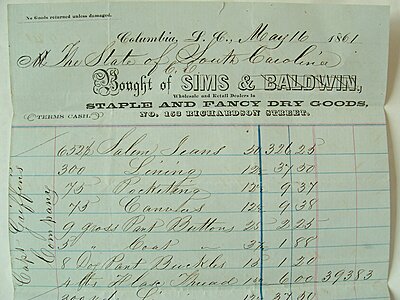 No Goods returned unless damaged.
Columbia, S. C., May 16 1861
M The State of South Carolina
Bought of SIMS & BALDWIN,
Wholesale and Retail Dealers in
STAPLE AND FANCY DRY GOODS,
TERMS CASH.
NO. 153 RICHARDSON STREET.
Capt Griffin's Company
652½ Salem Jeans 50 326 25
300 Lining 12½ 37 50
75 Pocketing 12½ 9 37
75 Canvas 12½ 9 38
9 gross Pant Buttons 25 2 25
5 " Coat " 37½ 1 88
8 Doz Pant Buckles 15 1 20
4 lbs Flax Thread 150 6 00 393 83
300 12½ 37 50